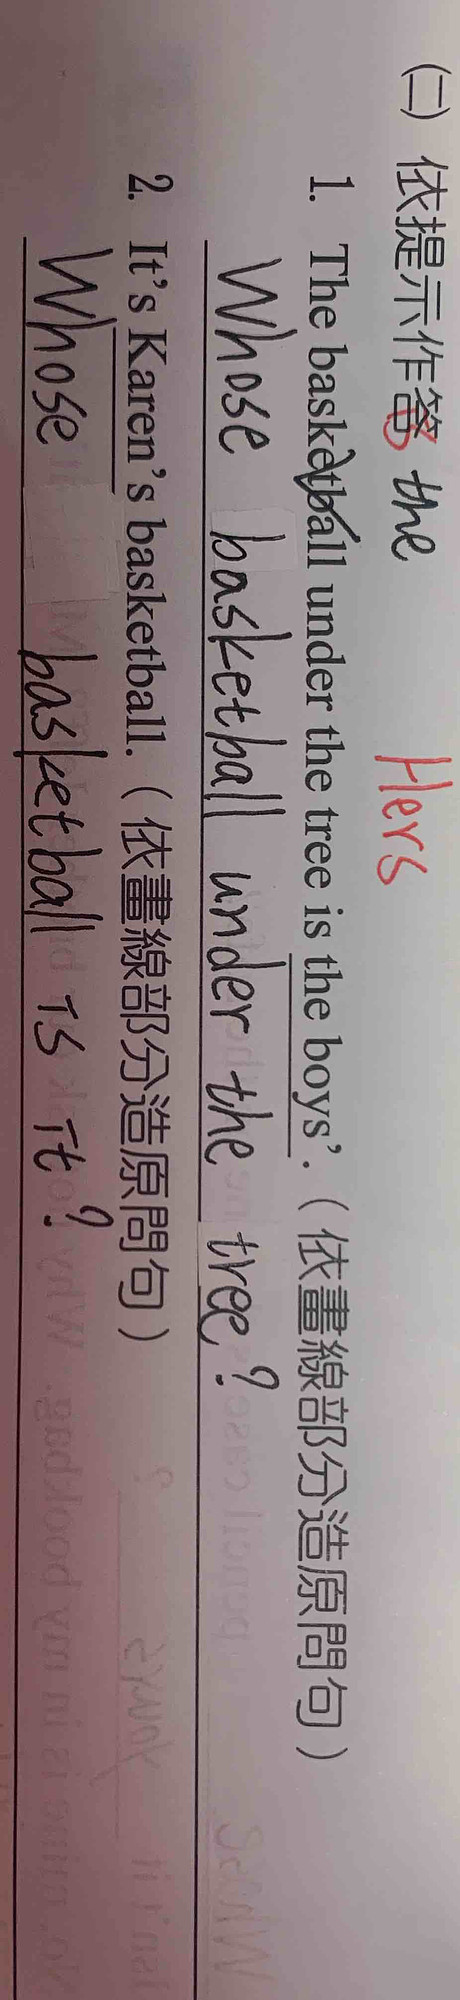 (二) 依提示作答 the
Hers
1. The basketball under the tree is the boys'. (依畫線部分造原問句)
Whose basketball under the tree?
2. It's Karen's basketball. (依畫線部分造原問句)
Whose basketball is it?